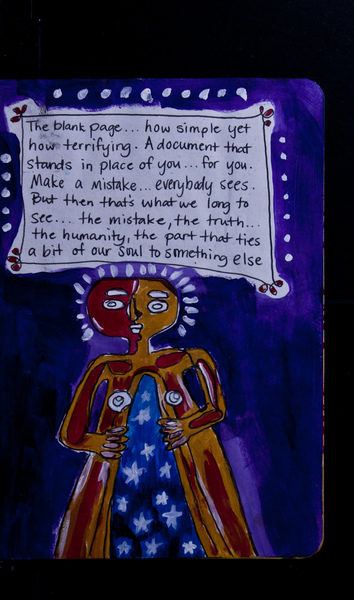 The blank page... how simple yet
how terrifying. A document that
stands in place of you... for you.
Make a mistake... everybody sees.
But then that's what we long to
see... the mistake, the truth...
the humanity, the part that ties
a bit of our soul to something else